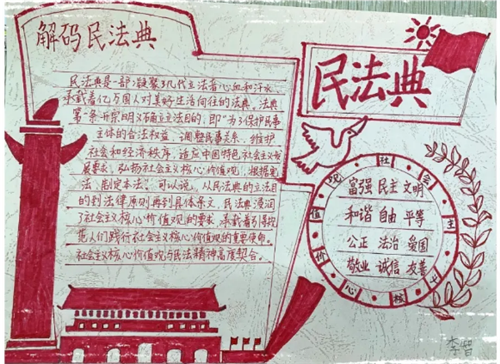 解码民法典
民法典是一部凝聚了几代立法者心血和汗水、
承载着亿万国人对美好生活向往的法典,法典
第一条开宗明义确立立法目的,即"为了保护民事
主体的合法权益,调整民事关系,维护
社会和经济秩序,适应中国特色社会主义发
展要求,弘扬社会主义核心价值观,根据宪
法,制定本法。"可以说,从民法典的立法目
的到法律原则再到具体条文,民法典浸润
了社会主义核心价值观的要求,承载着引导规
范人们践行社会主义核心价值观的重要使命。
社会主义核心价值观与民法精神高度契合。
民法典
社会主义核心价值观
富强 民主 文明
和谐 自由 平等
公正 法治 爱国
敬业 诚信 友善